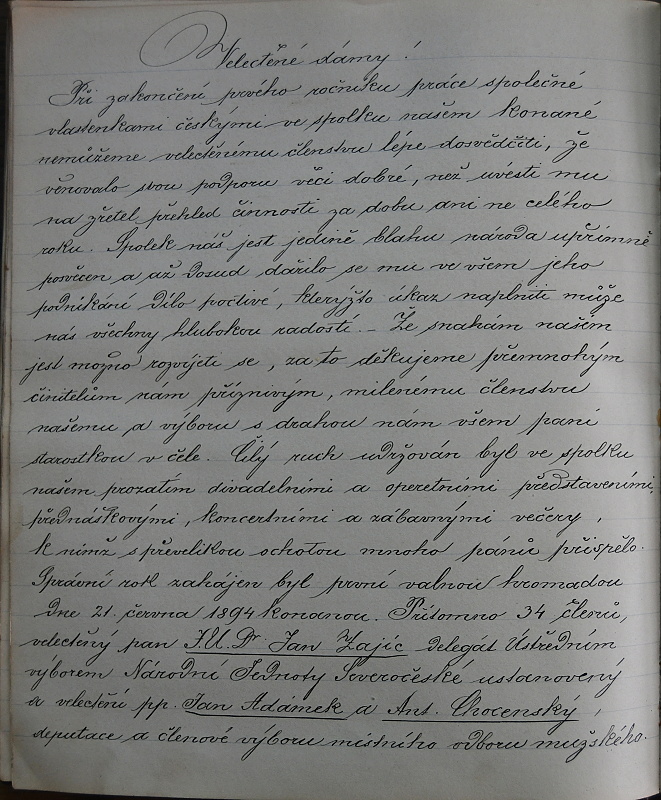 Velectěné dámy!
Při zakončení prvého ročníku práce společné
vlastenkami českými ve spolku našem konané
nemůžeme velectěnému členstvu lépe dosvědčiti, že
věnovalo svou podporu věci dobré, než uvésti mu
na zřetel přehled činnosti za dobu ani ne celého
roku. Spolek náš jest jedině blahu národa upřímně
posvěcen a až dosud dařilo se mu ve všem jeho
podnikání dílo poctivé, kterýžto úkaz naplniti může
nás všechny hlubokou radostí. – Že snahám našem
jest možno rozvíjeti se, za to děkujeme přemnohým
činitelům nám příznivým, milenému členstvu
našemu a výboru s drahou nám všem paní
starostkou v čele. Čilý ruch udržován byl ve spolku
našem prozatím divadelními a operetními představeními,
přednáškovými, koncertními a zábavnými večery,
k nimž s převelikou ochotou mnoho pánů přispělo.
Správní rok zahájen byl první valnou hromadou
dne 21. června 1894 konanou. Přítomno 34 členů,
velectěný pan J.U.Dr. Jan Zajíc delegát Ústředním
výborem Národní Jednoty Severočeské ustanovený
a velectění pp. Jan Adámek a Ant. Chocenský,
deputace a členové výboru místního odboru mužského.